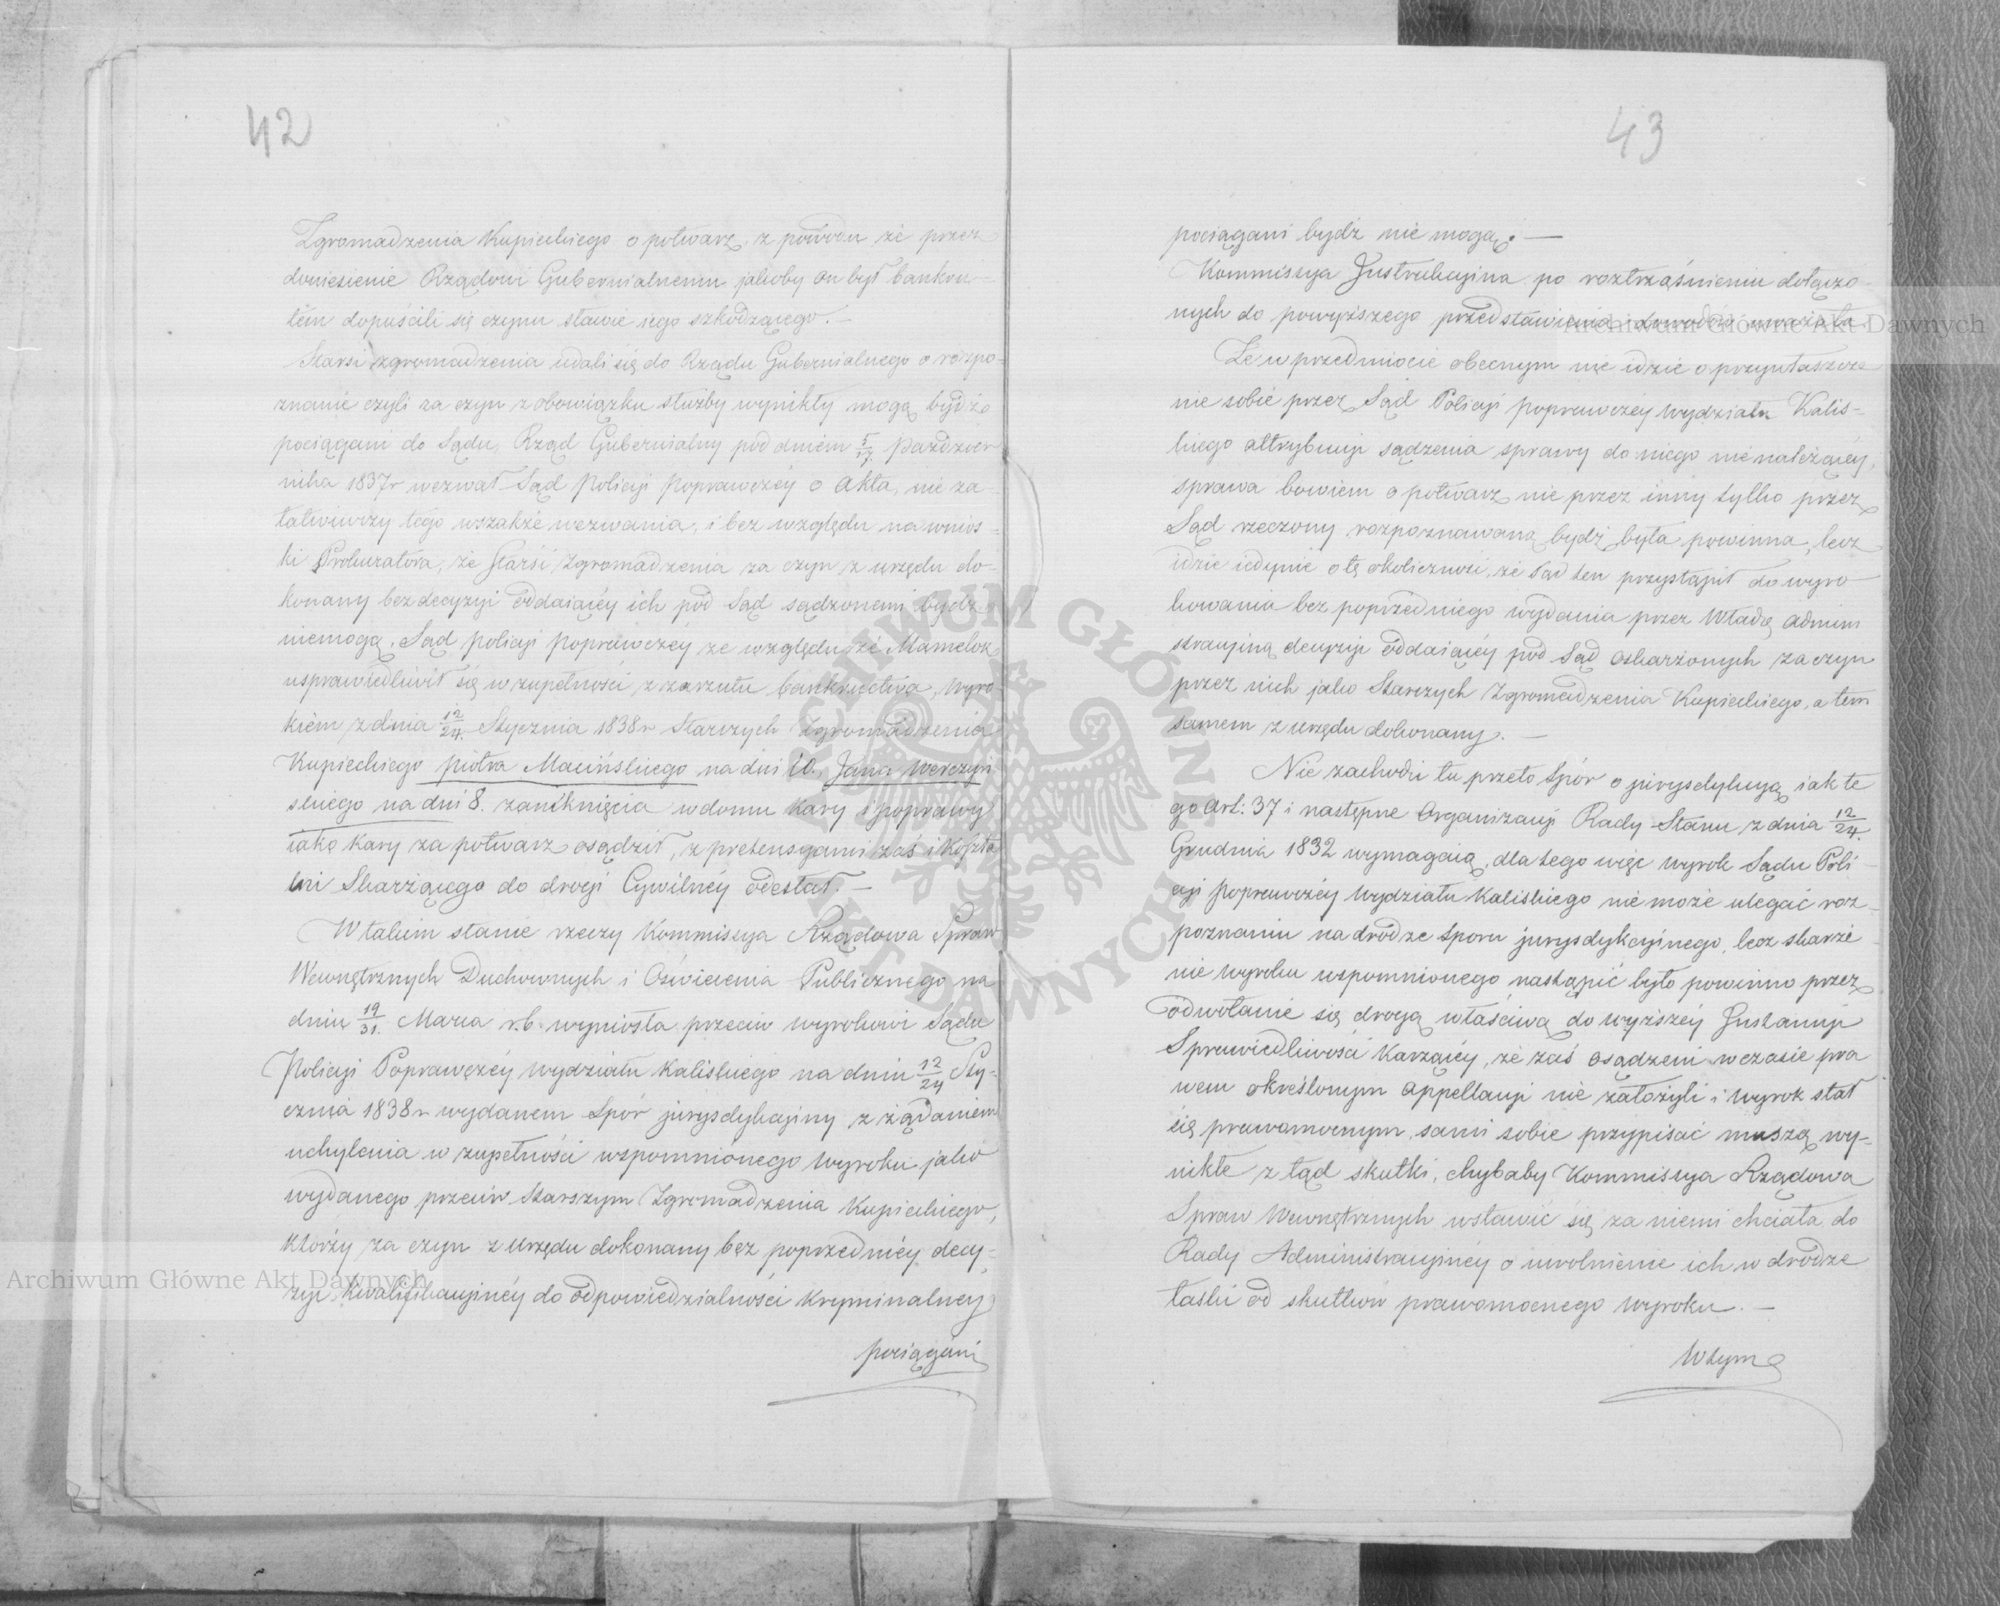 42
Zgromadzenia Kupieckiego o potwarz, z powodu że przez
doniesienie Rządowi Gubernialnemu jakoby on był bankru-
tem dopuścili się czynu sławie iego szkodzącego. —
Starsi zgromadzenia udali się do Rządu Gubernialnego o rozpo-
znanie czyli za czyn z obowiązku służby wynikły mogą bydź
pociągani do Sądu, Rząd Gubernialny pod dniem 5/17 Paździer
nika 1837 r wezwał Sąd Policyi Poprawczéy o Akta, nie za-
łatwiwszy tego wszakże wezwania, i bez względu na wnios-
ki Prokuratora, że Starsi Zgromadzenia za czyn z urzędu do-
konany bez decyzyi oddaiącéy ich pod Sąd sądzonemi bydź
niemogą, Sąd Policyi Poprawczéy ze względu że Mamelok
usprawiedliwił się w zupełności z zarzutu bankructwa, wyro-
kiem z dnia 12/24 Stycznia 1838 r Starszych Zgromadzenia
Kupieckiego Piotra Macińskiego na dni 10, Jana Werczyń
skiego na dni 8. zamknięcia w domu kary i poprawy
iako kary za potwarz osądził, z pretensyami zaś i koszta
mi Skarżącego do drogi Cywilnéy odesłał. —
W takim stanie rzeczy Kommissya Rządowa Spraw
Wewnętrznych Duchownych i Oświecenia Publicznego na
dniu 19/31. Marca r.b. wyniosła przeciw wyrokowi Sądu
Policyi Poprawczéy Wydziału Kaliskiego na dniu 12/24 Sty-
cznia 1838 r wydanem Spór jurysdykcyiny z żądaniem
uchylenia w zupełności wspomnionego wyroku jako
wydanego przeciw Starszym Zgromadzenia Kupieckiego,
którzy za czyn z urzędu dokonany bez poprzedniéy decy-
zyi Kwalifikacyinéy do odpowiedzialności kryminalney
pociągani
43
pociągani bydź nie mogą. —
Kommissya Instrukcyina po roztrząśnieniu dołączo-
nych do powyższego przedstawienia dowodów uważała.
Że w przedmiocie obecnym nie idzie o przywłaszcze
nie sobie przez Sąd Policyi Poprawczéy Wydziału Kalis-
kiego attrybucyi sądzenia sprawy do niego nie należącéy,
sprawa bowiem o potwarz nie przez inny tylko przez
Sąd rzeczony rozpoznawaną bydź była powinna, lecz
idzie iedynie o tę okoliczność, że Sąd ten przystąpił do wyro
kowania bez poprzedniego wydania przez Władzę Admini
stracyiną decyzyi oddaiącéy pod Sąd oskarżonych za czyn
przez nich jako Starszych Zgromadzenia Kupieckiego, a tem
samem z urzędu dokonany. —
Nie zachodzi tu przeto Spór o jurysdykcyą, iak te
go Art: 37 i następne Organizacyi Rady Stanu z dnia 12/24.
Grudnia 1832 wymagaią, dla tego więc wyrok Sądu Poli
cyi Poprawczéy Wydziału Kaliskiego nie może ulegać roz-
poznaniu na drodze Sporu jurysdykcyinego, lecz skarże-
nie wyroku wspomnionego nastąpić było powinno przez
odwołanie się drogą właściwą do wyższéy Instancyi
Sprawiedliwości Karzącéy, że zaś osądzeni w czasie pra
wem określonym appellacyi nie założyli i wyrok stał
się prawomocnym, sami sobie przypisać muszą wy-
nikłe z tąd skutki, chybaby Kommissya Rządowa
Spraw Wewnętrznych wstawić się za niemi chciała do
Rady Administracyinéy o uwolnienie ich w drodze
łaski od skutków prawomocnego wyroku. —
W tym
Archiwum Główne Akt Dawnych
Archiwum Główne Akt Dawnych
ARCHIWUM GŁÓWNE AKT DAWNYCH